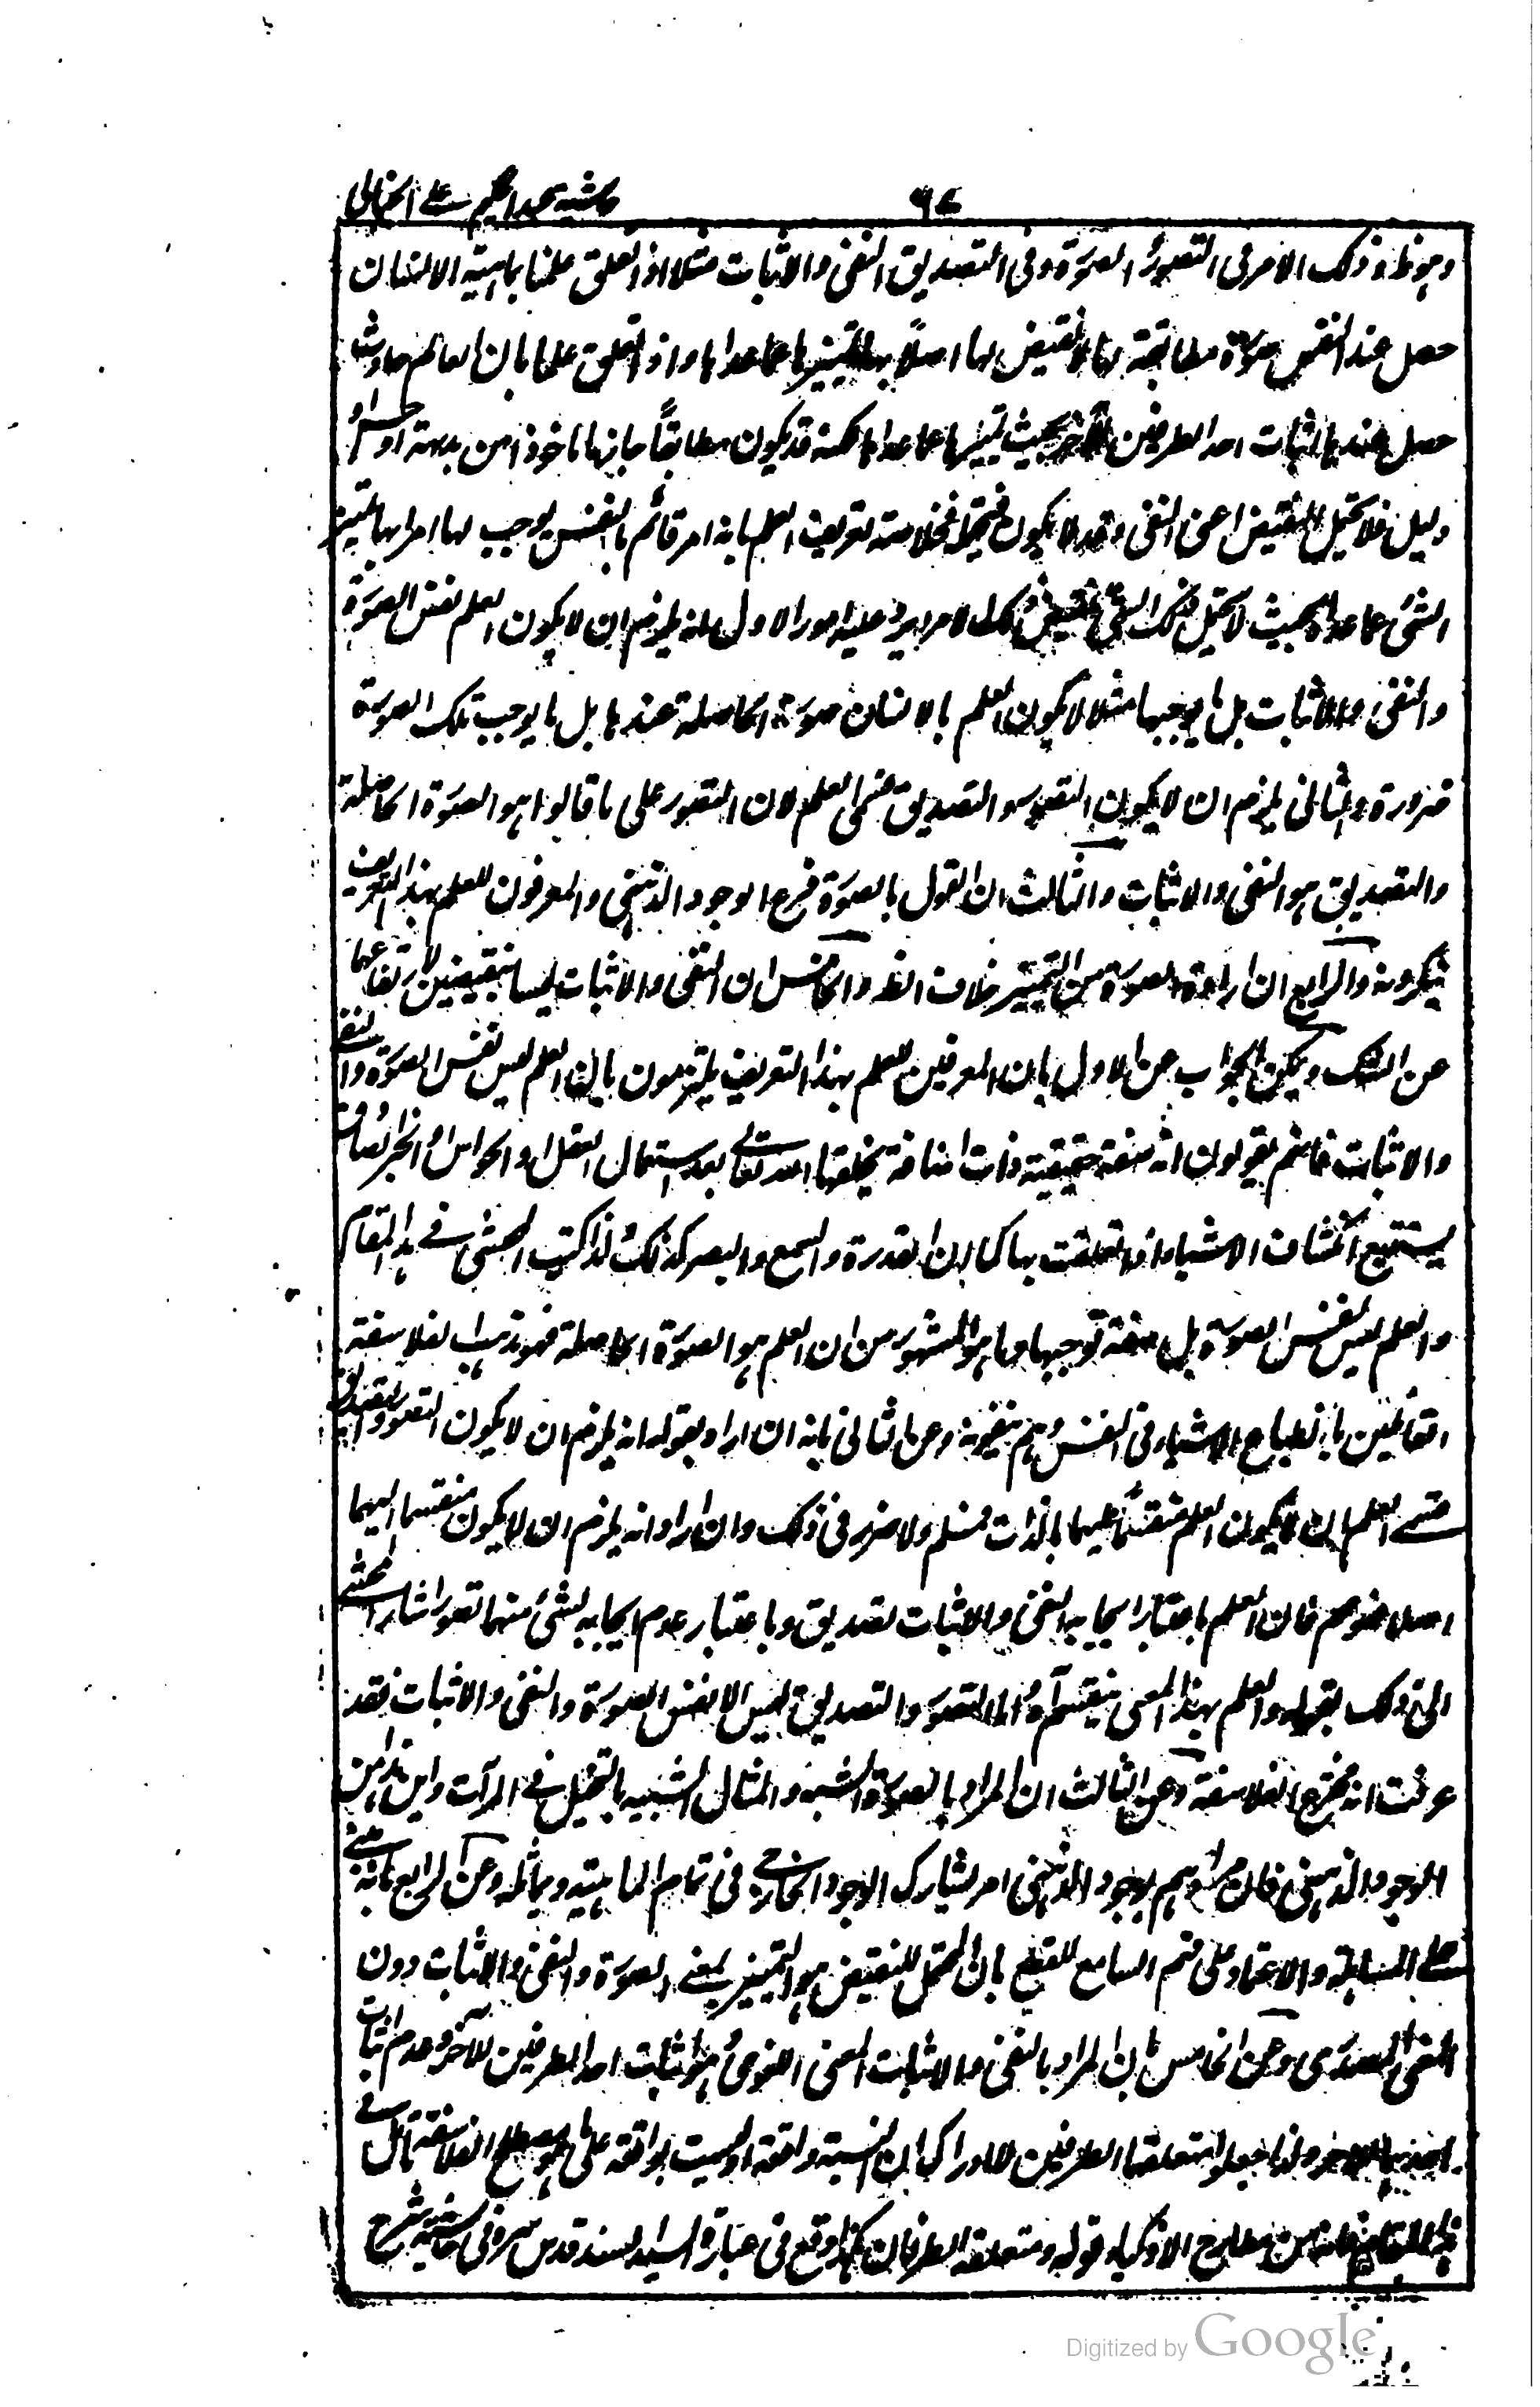 ٩٧ حاشيه عبد الحكيم على الخيالى
وهو ظ وذلك الامر فى التصور الصورة وفى التصديق النفى والاثبات مثلا اذا تعلق علمنا بماهية الانسان
حصل عند النفس صورة مطابقة لها لا نقيض لها اصلا بها تميزها عما عداها واذا تعلق علمنا بان العالم حادث
حصل عندها اثبات احد الطرفين للآخر بحيث تميزها عما عداها لكنه قد يكون مطابقا جازما ماخوذا من بديهة او حس او
دليل فلا يحتمل النقيض اعنى النفى وقد لا يكون فيحتمله فخلاصة تعريف العلم بانه امر قائم بالنفس يوجب لها امرا بها تميز
الشئ عما عداه بحيث لا يحتمل ذلك الشئ نقيض ذلك الامر يرد عليه امور الاول انه يلزم ان لا يكون العلم نفس الصورة
والنفى والاثبات بل ما يوجبها مثلا لا يكون العلم بالانسان صورة الحاصلة عندها بل ما يوجب تلك الصورة
ضرورة والثانى يلزم ان لا يكون التصور والتصديق قسمى العلم لان التصور على ما قالوا هو الصورة الحاصلة
والتصديق هو النفى والاثبات والثالث ان القول بالصورة فرع الوجود الذهنى والمعرفون للعلم بهذا التعريف
ينكرونه والرابع ان ارادة الصورة من التميز خلاف الظ والخامس ان النفى والاثبات ليسا نقيضين لارتفاعهما
عن الشك ويمكن الجواب عن الاول بان المعرفين للعلم بهذا التعريف يلتزمون بان العلم ليس نفس الصورة والنفى
والاثبات فانهم يقولون انه صفة حقيقية ذات اضافة يخلقها الله تعالى بعد استعمال العقل او الحواس او الخبر الصادق
يستتبع انكشاف الاشياء اذا تعلقت بها كما ان القدرة والسمع والبصر كذلك لذا كتب المحشى فى هذا المقام
والعلم ليس نفس الصورة بل صفة توجبها وما هو المشهور من ان العلم هو الصورة الحاصلة فهو مذهب الفلاسفة
القائلين بانطباع الاشياء فى النفس وهم ينفونه وعن الثانى بانه ان اراد بقوله انه يلزم ان لا يكون التصور والتصديق
قسمى العلم ان لا يكون العلم منقسما اليهما بالذات فمسلم ولا ضرر فى ذلك وان اراد انه يلزم ان لا يكون منقسما اليهما
اصلا فممنوع فان العلم باعتبار ايجابه النفى والاثبات تصديق وباعتبار عدم ايجابه لشئ منهما تصور اشار المحشى
الى ذلك بقوله والعلم بهذا المعنى ينقسم آه واما التصور والتصديق ليس الا نفس الصورة والنفى والاثبات فقد
عرفت انه مخترع الفلاسفة وعن الثالث ان المراد بالصورة الشبه والمثال الشبيه بالمتخيل فى المرآت واين هذا من
الوجود الذهنى فان مرادهم بوجود الذهنى امر يشارك الوجود الخارجى فى تمام الماهية ويماثله وعن الرابع بانه مبنى
على المسامحة والاعتماد على فهم السامع للقطع بان المحتمل للنقيض هو التميز بمعنى الصورة والنفى والاثبات دون
المعنى المصدرى وعن الخامس بان المراد بالنفى والاثبات المعنى اللغوى هو اثبات احد الطرفين للآخر وعدم اثبات
احدهما للآخر ولذا جعلوا متعلقها الطرفين لا ادراك ان النسبة واقعة او ليست بواقعة على ما هو مصطلح الفلاسفة تأمل فى
هذا المقام فانه من مطارح الاذكياء قوله ومتعلقه الطرفان كذا وقع فى عبارة السيد السند قدس سره فى حاشية شرح
Digitized by Google